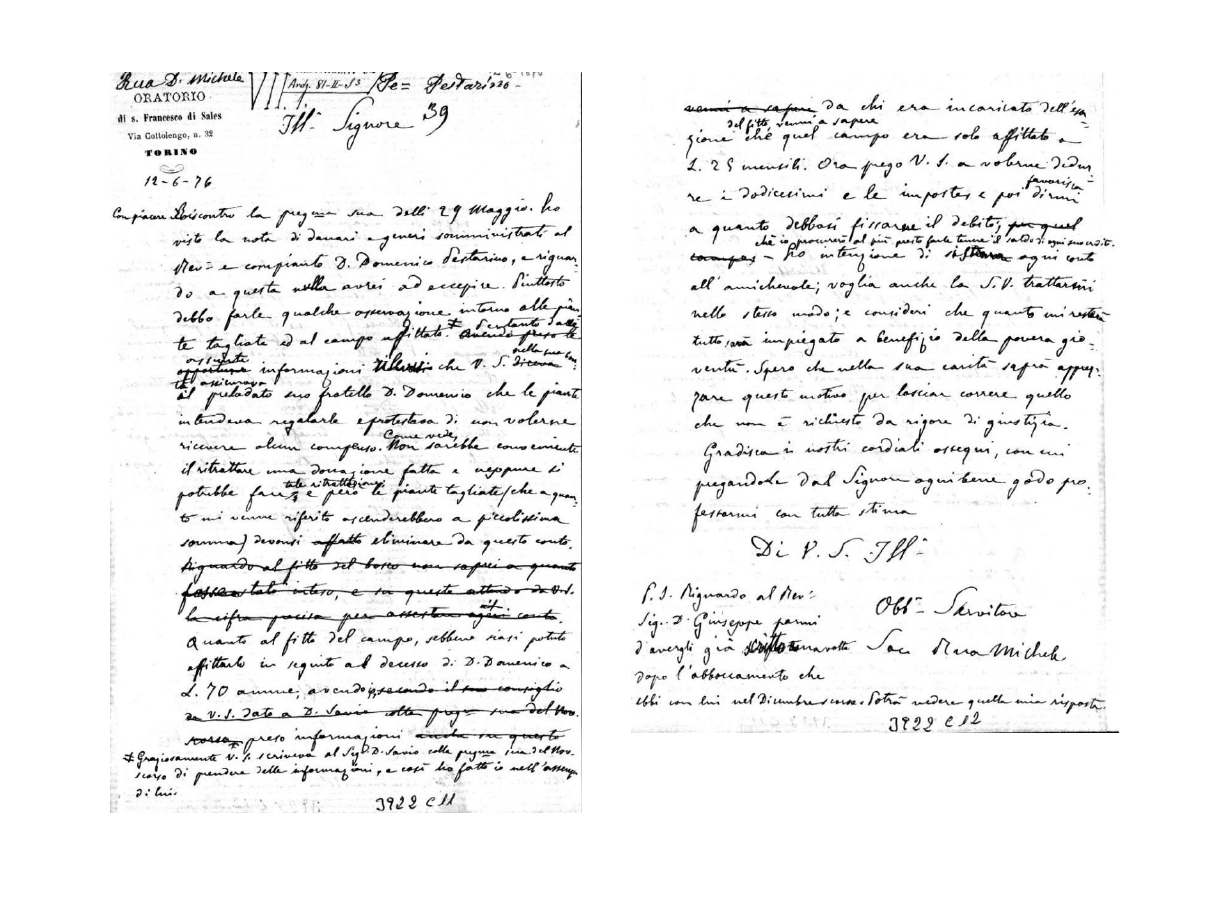 Rua D. Michele
VII
Arch. 81-II-53
Pe= Pestarino-
ORATORIO
di s. Francesco di Sales
Via Cottolengo, n. 32
TORINO
12-6-76
Ill- Signore 39
Con piacere Riscontro la pregma sua delli 29 Maggio. ho
visto la nota di danari e generi somministrati al
Rev- e compianto D. Domenico Pestarino, e riguar-
do a questa nulla avrei ad eccepire. Piuttosto
debbo farle qualche osservazione intorno alle pian-
te tagliate ed al campo affittato. ‡ Pertanto dalle
Avendo preso le
assunte
opportune informazioni che V. S. diceva
il prelodato suo fratello D. Domenico che le piante
intendeva regalarle e protestava di non volerne
ricevere alcun compenso. Come vede
Non sarebbe conveniente
il ritrattare una donazione fatta e neppure si
potrebbe fare tale ritrattazione
e però le piante tagliate (che a quan-
to mi venne riferito ascenderebbero a piccolissima
somma) devonsi affatto eliminare da questo conto.
Riguardo al fitto del bosco non saprei a quanto
fosse stato inteso, e su questo attendo da V. S.
la cifra precisa per assestare ogni conto.
Quanto al fitto del campo, sebbene siasi potuto
affittarlo in seguito al decesso di D. Domenico a
L. 70 annue, avendo, secondo il suo consiglio
da V. S. dato a D. Savio colla preg- sua del Nov.
scorso, preso informazioni anche su questo
‡ Graziosamente V. S. scriveva al Sig. D. Savio colla pregma sua del Nov-
scorso di prendere delle informazioni, e così ho fatto io nell'assenza
di lui.
3922 C 11
venni a sapere da chi era incaricato dell'esa-
del fitto venni a sapere
zione che quel campo era solo affittato a
L. 25 mensili. Ora prego V. S. a volerne dedur-
re i dodicesimi e le imposte e poi favorisca
dirmi
a quanto debbasi fissarne il debito, per quel
che io procurerò al più presto farle tenere il saldo di ogni suo credito.
campo - Ho intenzione di ogni conto
all'amichevole; voglia anche la S.V. trattarmi
nello stesso modo; e consideri che quanto mi resterà
tutto sarà impiegato a benefizio della povera gio-
ventù. Spero che nella sua carità saprà apprez-
zare questo motivo per lasciar correre quello
che non è richiesto da rigore di giustizia.
Gradisca i nostri cordiali ossequi, con cui
pregandole dal Signore ogni bene godo pro-
fessarmi con tutta stima
Di V. S. Ill-
Obb- Servitore
Sac. Rua Michele
P. S. Riguardo al Rev-
Sig. D. Giuseppe parmi
d'avergli già scritto una volta
dopo l'abboccamento che
ebbi con lui nel Dicembre scorso. Potrà vedere quella mia risposta.
3922 C 12